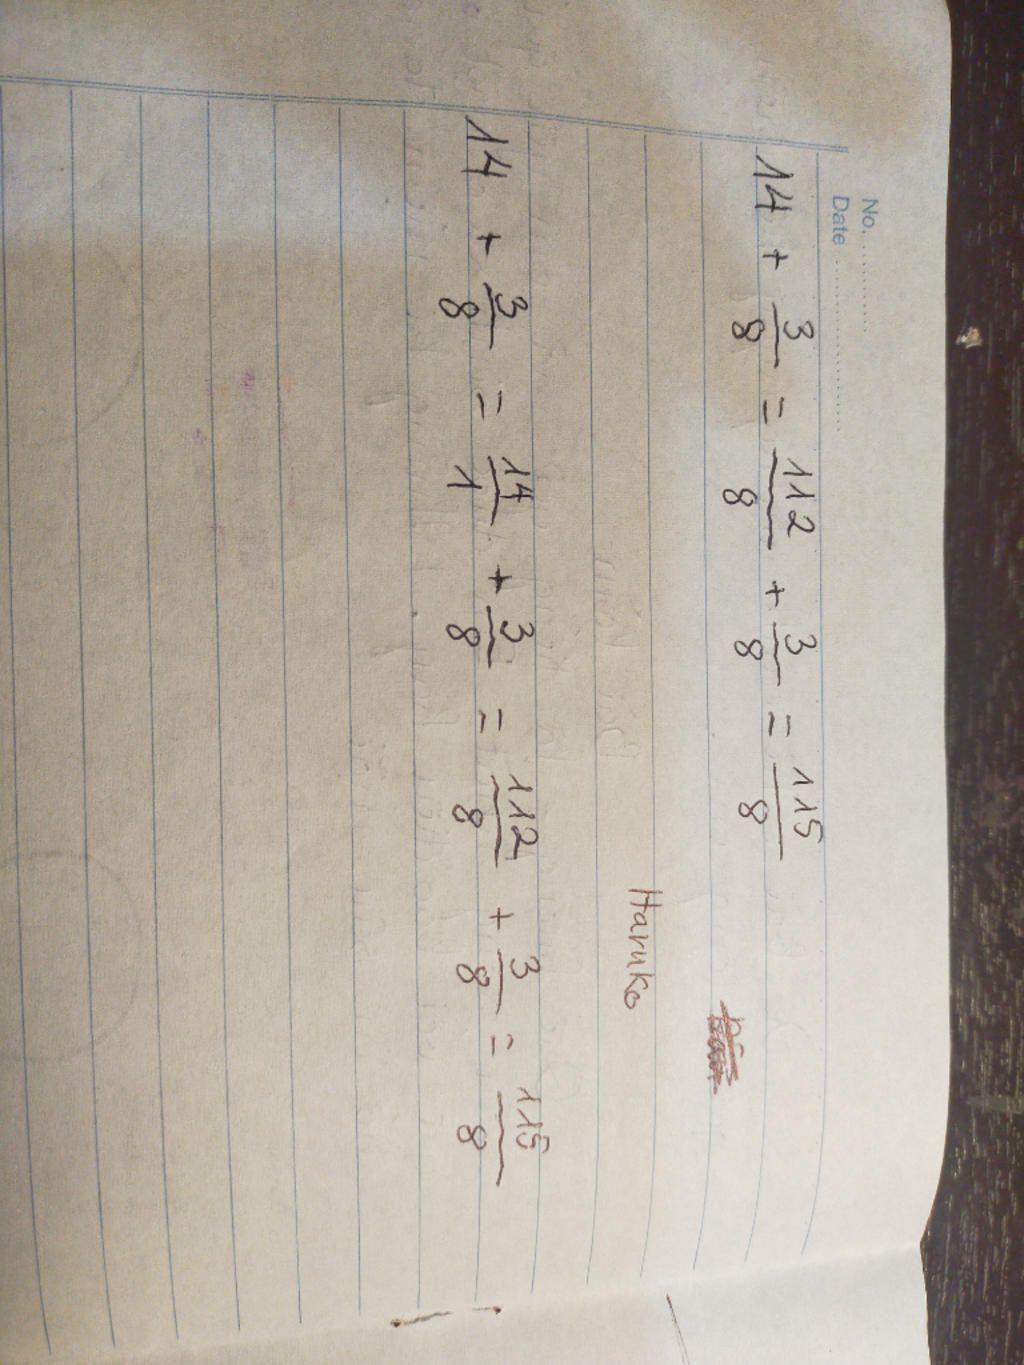 No. ............
Date ........................
14 + 3/8 = 112/8 + 3/8 = 115/8
Haruko
14 + 3/8 = 14/1 + 3/8 = 112/8 + 3/8 = 115/8